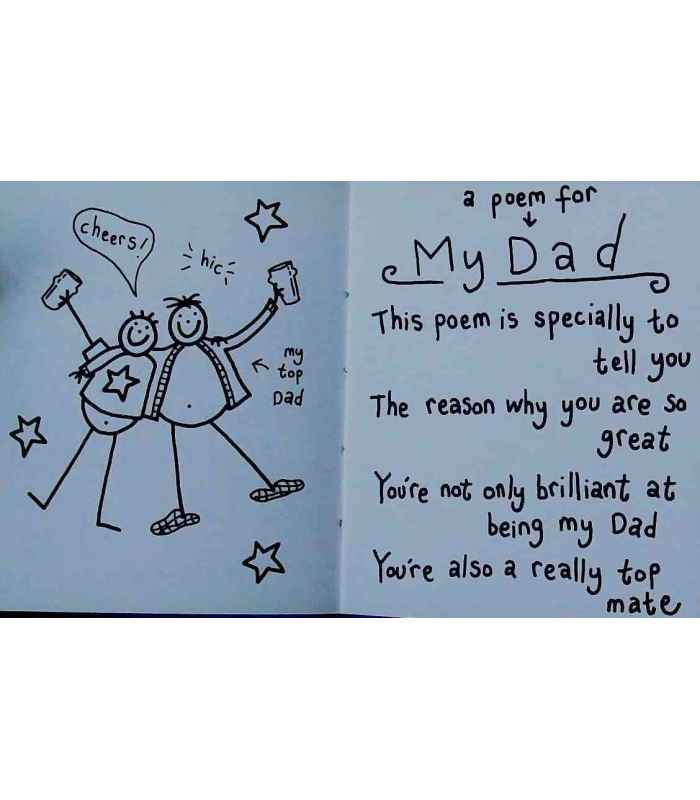 cheers!
hic
my
top
Dad
a poem for
My Dad
This poem is specially to
tell you
The reason why you are so
great
You're not only brilliant at
being my Dad
You're also a really top
mate